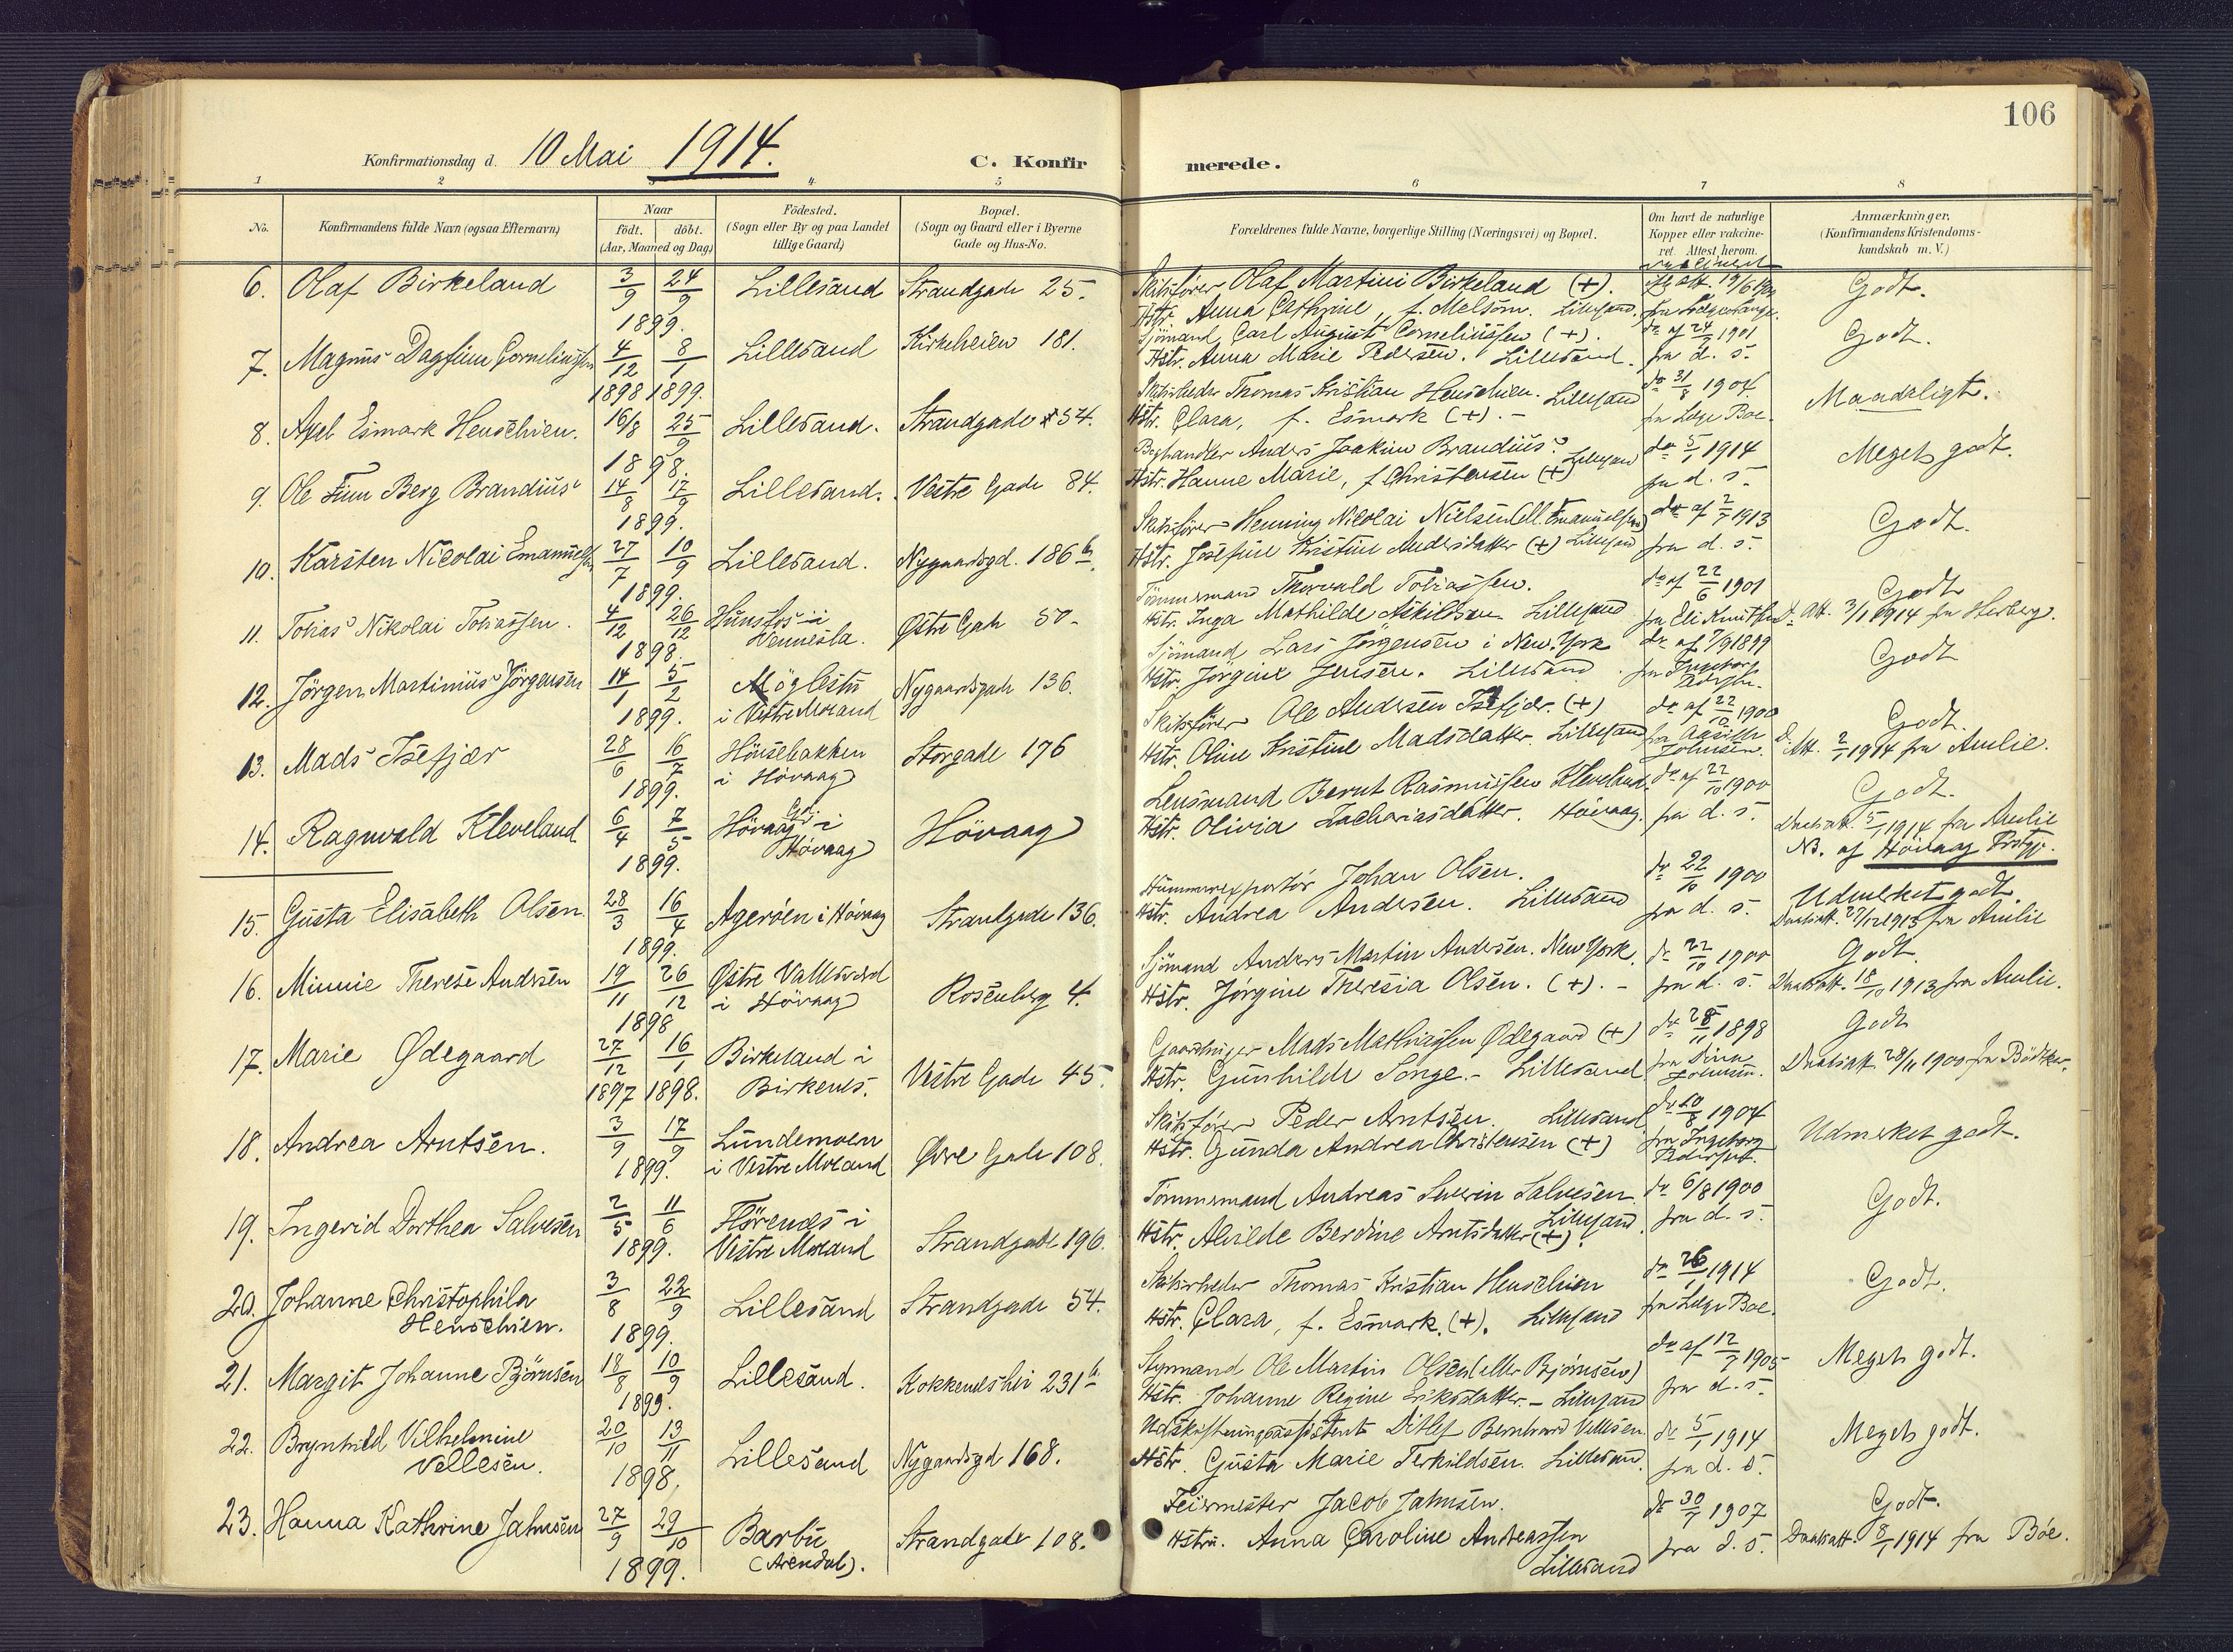 106
Konfirmationsdag d. 10 Mai 1914. C. Konfirmerede.
1 2 3 4 5 6 7 8
No. Konfirmandens fulde Navn (ogsaa Efternavn) Naar født. døbt. (Aar, Maaned og Dag) Födested. (Sogn eller By og paa Landet tillige Gaard) Bopæl. (Sogn og Gaard eller i Byerne Gade og Hus-No. Forældrenes fulde Navne, borgerlige Stilling (Næringsvei) og Bopæl. Om havt de naturlige Kopper eller vakcineret. Attest herom. Anmærkninger. (Konfirmandens Kristendomskundskab m. V.)
6. Olaf Birkeland 3/9 24/9 1899. Lillesand Strandgade 25. Skibsfører Olaf Martini Birkeland (+). Godt.
Hstr. Anna Cathrine, f. Melsom. Lillesand.
7. Magnus Dagfinn Corneliussen 4/12 1898 8/1 1899. Lillesand Kirkeheien 181. Sjömand Carl August Corneliussen (+). do af 24/7 1901 Godt.
Hstr. Anna Marie Pedersen. Lillesand. fra d. s.
8. Axel Esmark Henschien. 16/8 25/9 1898. Lillesand. Strandgade 54. Skibsrheder Thomas Kristian Henschien. Lillesand do 31/8 1904 Maadeligt.
Hstr. Clara, f. Esmark (+). fra Læge Boe.
9. Ole Finn Berg Brandius 14/8 17/9 1899. Lillesand. Vestre Gade 84. Boghandler Anders Joakim Brandius. Lillesand do 5/1 1914 Meget godt.
Hstr. Hanne Marie, f. Christensen (+) fra d. s.
10. Karsten Nicolai Emanuelsen 27/7 10/9 1899. Lillesand. Nygaardsgd. 186 b. Skibsfører Henning Nicolai Nielsen (ell. Emanuelsen) do af 2/7 1913 Godt.
Hstr. Josefine Kristine Andersdatter (+) Lillesand fra d. s.
11. Tobias Nikolai Tobiassen. 4/12 26/12 1898. Hunsfos i Vennesla. Østre Gade 50. Tømmermand Thorvald Tobiassen. do af 22/6 1901 Godt
Hstr. Inga Mathilde Askildsen Lillesand fra Eli Knutsen D. att. 3/1 1914 fra Herberg.
12. Jörgen Martinius Jörgensen 14/1 5/2 1899. Møglestu i Vestre Moland Nygaardsgade 136. Sjömand Lars Jörgensen i New York do af 7/9 1899 Godt
Hstr. Jörgine Jensen. Lillesand. fra Ingeborg
13. Mads Isefjær 28/6 16/7 1899. Hönsebakken i Hövaag Storgade 176 Skibsfører Ole Andersen Isefjær. (+) do af 22/10 1900 Godt.
Hstr. Oline Kristine Madsdatter. Lillesand fra Johnsen. D. Att. 2/1 1914 fra Amlie.
14. Ragnvald Kleveland 6/4 7/5 1899. Hövaag Gd. i Hövaag Hövaag Lensmand Bernt Rasmussen Kleveland. do af 22/10 1900 Godt.
Hstr. Olivia Zachariasdatter. Hövaag. fra d. s. Daabsatt. 5/1 1914 fra Amlie
NB. af Høivaag Prstgj.
15. Gusta Elisabeth Olsen 28/3 16/4 1899. Agerøen i Hövaag Strandgade 136. Hummerexportør Johan Olsen. do 22/10 1900 Udmerket godt.
Hstr. Andrea Andersen. Lillesand fra d. s. Daabsatt. 27/12 1913 fra Amlie
16. Minnie Therese Andersen 19/11 26/12 1898 Østre Vallesværd i Hövaag Rosenberg 4. Sjömand Anders Martin Andersen. New York. do 22/10 1900 Godt.
Hstr. Jörgine Theresia Olsen. (+). fra d. s. Daabsatt. 18/10 1913 fra Amlie.
17. Marie Ødegaard 27/12 1897 16/1 1898. Birkeland i Birkenes. Vestre Gade 45. Gaardbruger Mads Mathiassen Ødegaard (+) do 28/11 1898 Godt
Hstr. Gunhilde Songe. Lillesand fra Dina Daabsatt. 28/11 1900 fra Bödtker.
18. Andrea Arntsen. 3/9 17/9 1899. Lundemoen i Vestre Moland Øvre Gade 108. Skibsfører Peder Arntsen. Lillesand do 10/8 1904 Udmerket godt.
Hstr. Gunda Andrea Christensen (+) fra Ingeborg Pedersen.
19. Ingerid Dorthea Salvesen 2/5 11/6 1899. Flörenes i Vestre Moland Strandgade 196. Tømmermand Andreas Severin Salvesen do 6/8 1900 Godt.
Hstr. Alvilde Berdine Arntsdatter (+). Lillesand. fra d. s.
20. Johanne Christophila Henschien. 3/8 22/9 1899. Lillesand Strandgade 54. Skibsrheder Thomas Kristian Henschien do 26/1 1914 Godt.
Hstr. Clara, f. Esmark. (+). Lillesand fra Læge Boe.
21. Margit Johanne Björnsen 18/8 10/9 1899. Lillesand. Kokkeneshei 231 b Styrmand Ole Martin Olsen (eller Bjørnsen) do af 12/7 1905 Meget godt.
Hstr. Johanne Regine Eriksdatter. - Lillesand fra d. s.
22. Brynhild Vilhelmine Vellesen. 20/10 13/11 1898, Lillesand Nygaardsgd 168. Udskiftningsassistent Ditlef Bernhard Vellesen do 5/1 1914 Meget godt.
Hstr. Gusta Marie Terkildsen. Lillesand. fra d. s.
23. Hanna Kathrine Jahnsen 27/9 29/10 1899. Barbu (Arendal). Strandgade 108. Feiermester Jacob Jahnsen. do 30/7 1907 Godt.
Hstru. Anna Caroline Andreassen Lillesand fra d. s. Daabsatt. 8/1 1914 fra Böe.